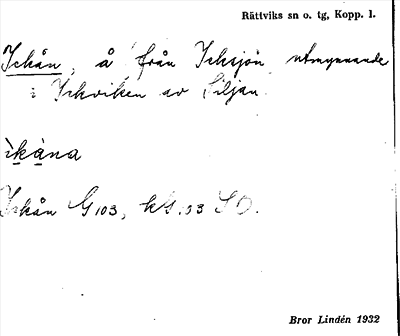 Rättviks sn o. tg, Kopp. l.
Ickån, å från Icksjön utmynnande
i Ickviken av Siljan.
ìkåna
Ickån G 103, kbl. 93 SO.
Bror Lindén 1932